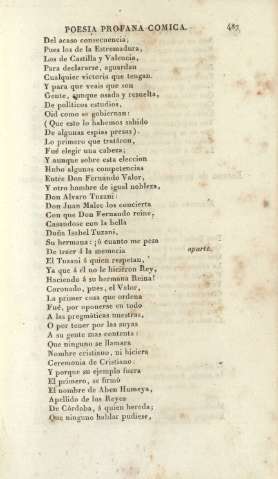 POESIA PROFANA COMICA. 487
Del acaso consecuencia,
Pues los de la Estremadura,
Los de Castilla y Valencia,
Para declararse, aguardan
Cualquier victoria que tengan.
Y para que veais que son
Gente, aunque osada y resuelta,
De políticos estudios,
Oid como se gobiernan:
(Que esto lo habemos sabido
De algunas espias presas).
Lo primero que tratáron,
Fué elegir una cabeza;
Y aunque sobre esta eleccion
Hubo algunas competencias
Entre Don Fernando Valor,
Y otro hombre de igual nobleza,
Don Alvaro Tuzani:
Don Juan Malec los concierta
Con que Don Fernando reine,
Casandose con la bella
Doña Isabel Tuzani,
Su hermana: ¡ó cuanto me pesa
De traer á la memoria aparte.
El Tuzani á quien respetan,
Ya que á él no le hiciéron Rey,
Haciendo á su hermana Reina!
Coronado, pues, el Valor,
La primer cosa que ordena
Fué, por oponerse en todo
A las pregmáticas nuestras,
O por tener por las suyas
A su gente mas contenta:
Que ninguno se llamara
Nombre cristiano, ni hiciera
Ceremonia de Cristiano.
Y porque su ejemplo fuera
El primero, se firmó
El nombre de Aben Humeya,
Apellido de los Reyes
De Córdoba, á quien hereda;
Que ninguno hablar pudiese,